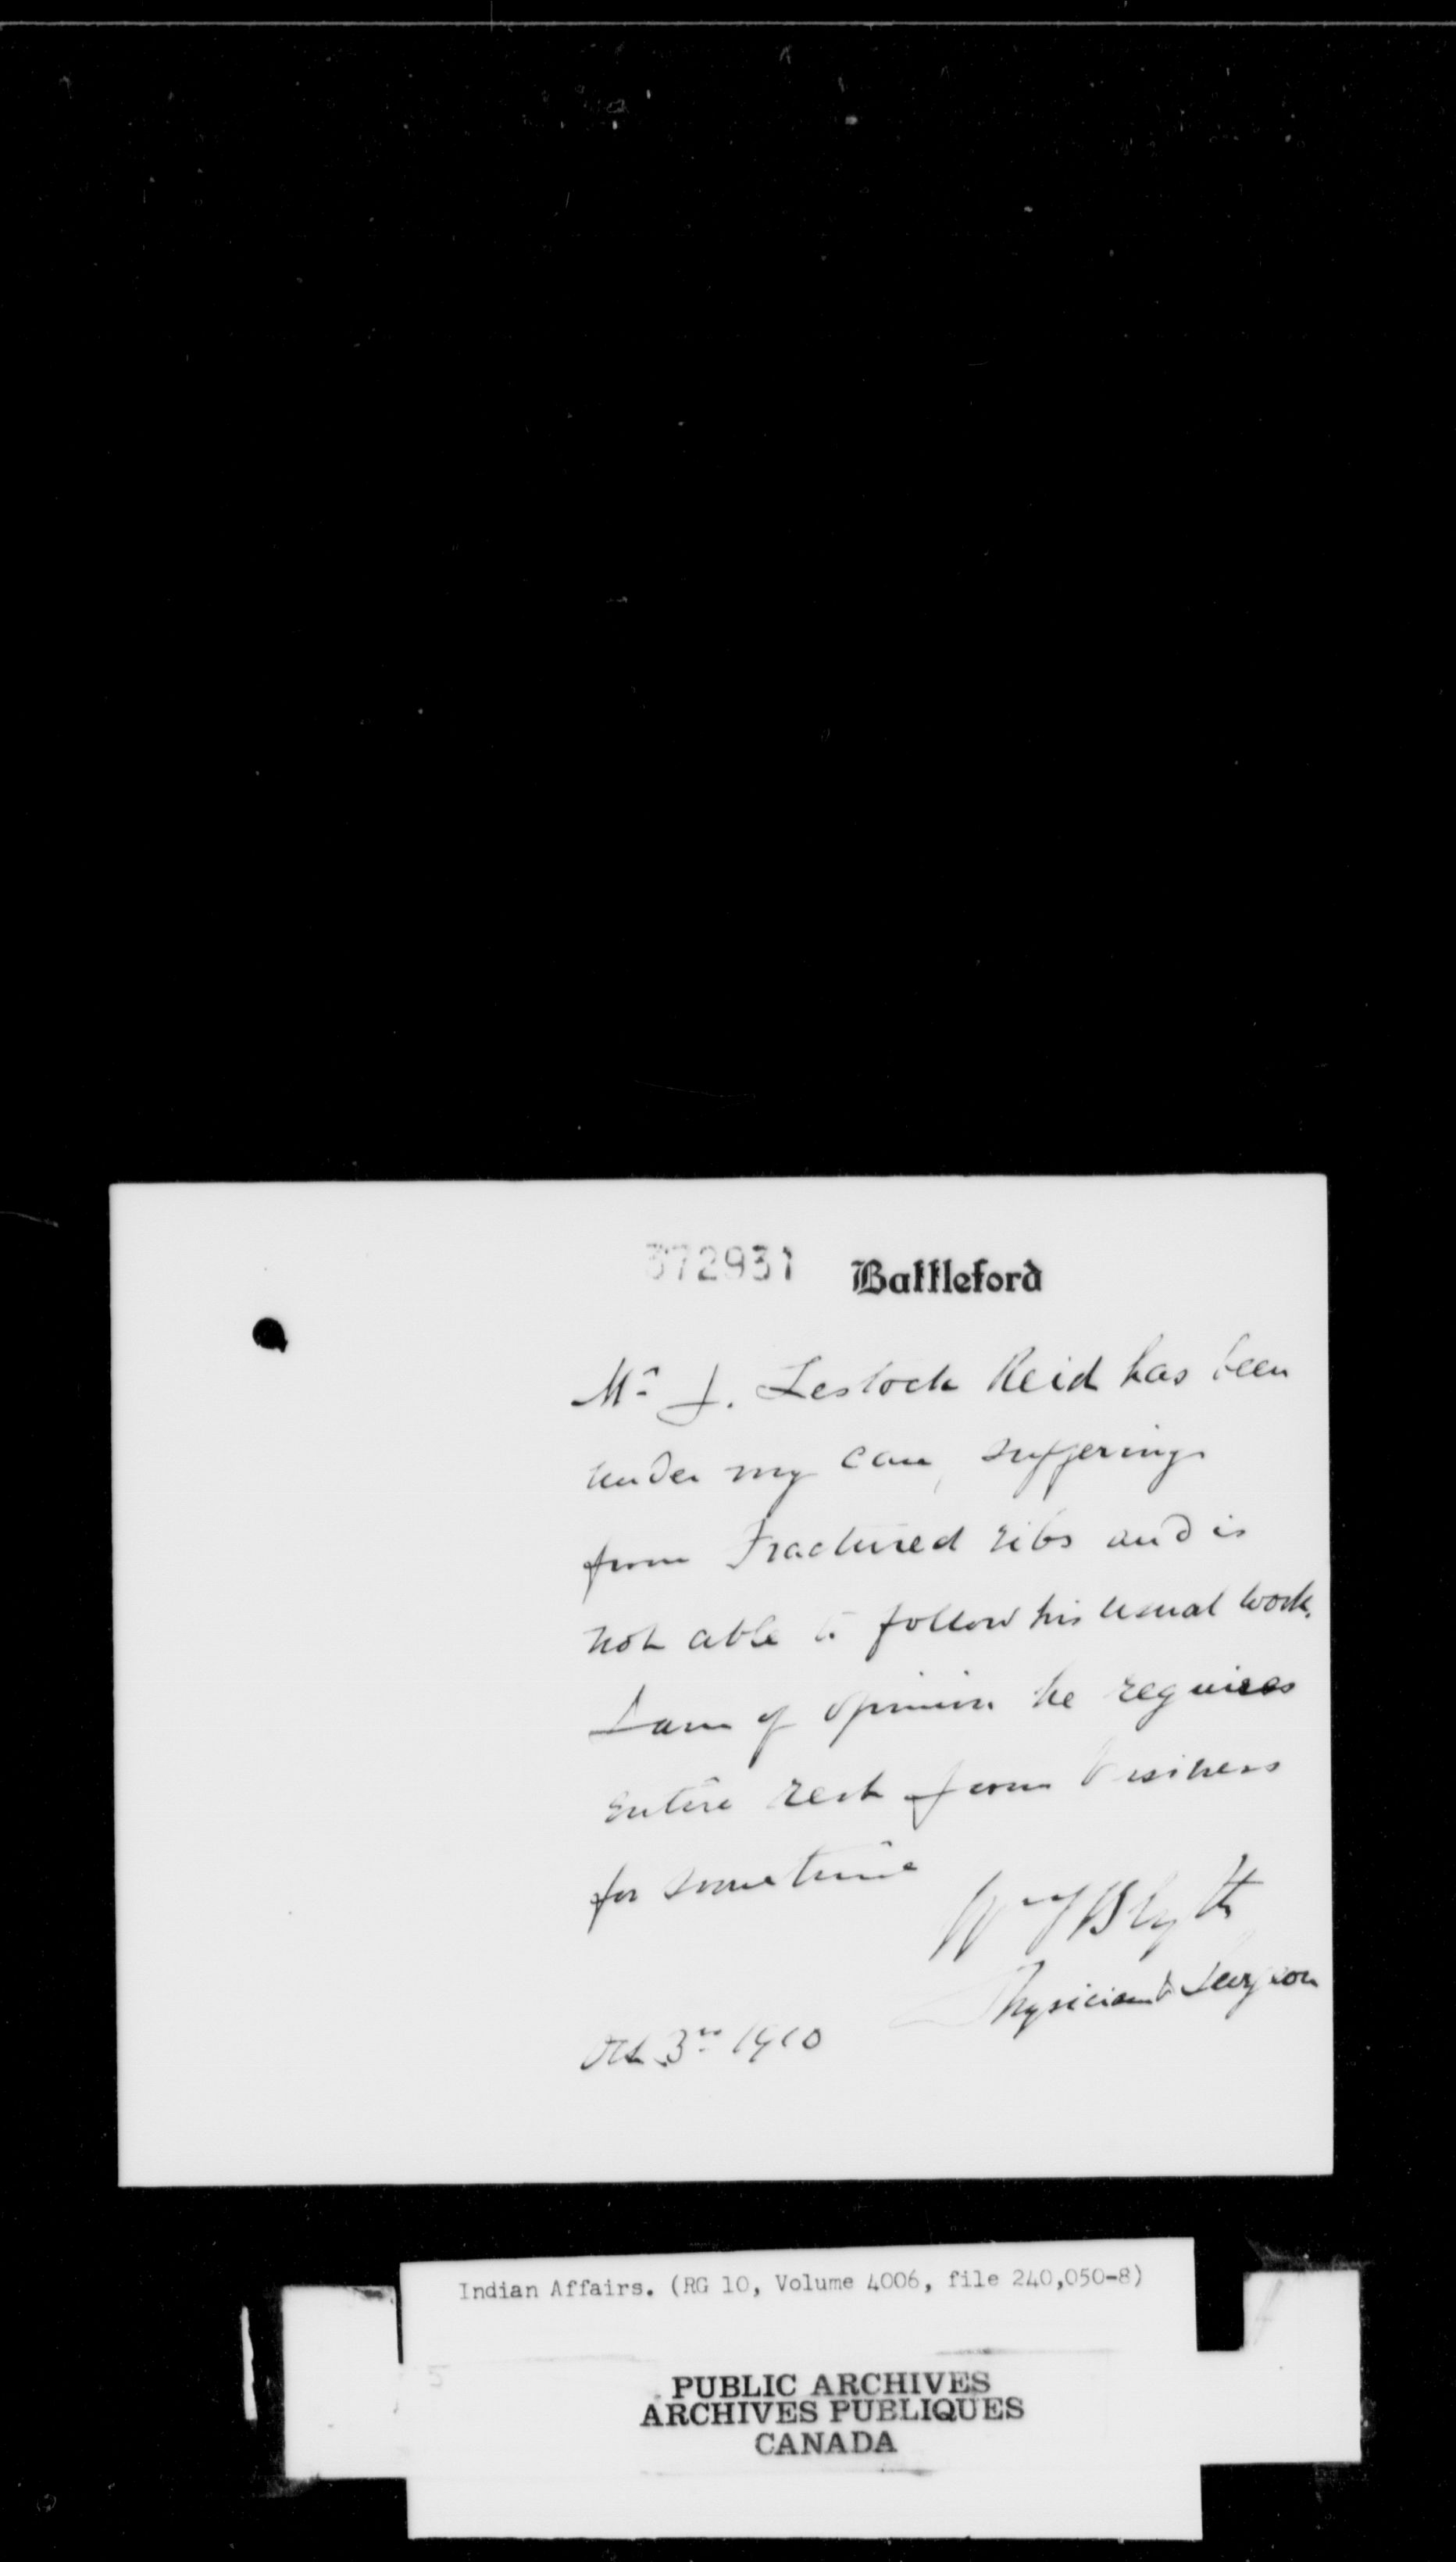 372931 Battleford
Mr J. Lestock Reid has been
under my care, suffering
from Fractured ribs and is
not able to follow his usual work.
I am of opinion he requires
entire rest from business
for sometime
Wm J Blyth
Physician & Surgeon
Oct 3rd 1910
Indian Affairs. (RG 10, Volume 4006, file 240,050-8)
PUBLIC ARCHIVES
ARCHIVES PUBLIQUES
CANADA